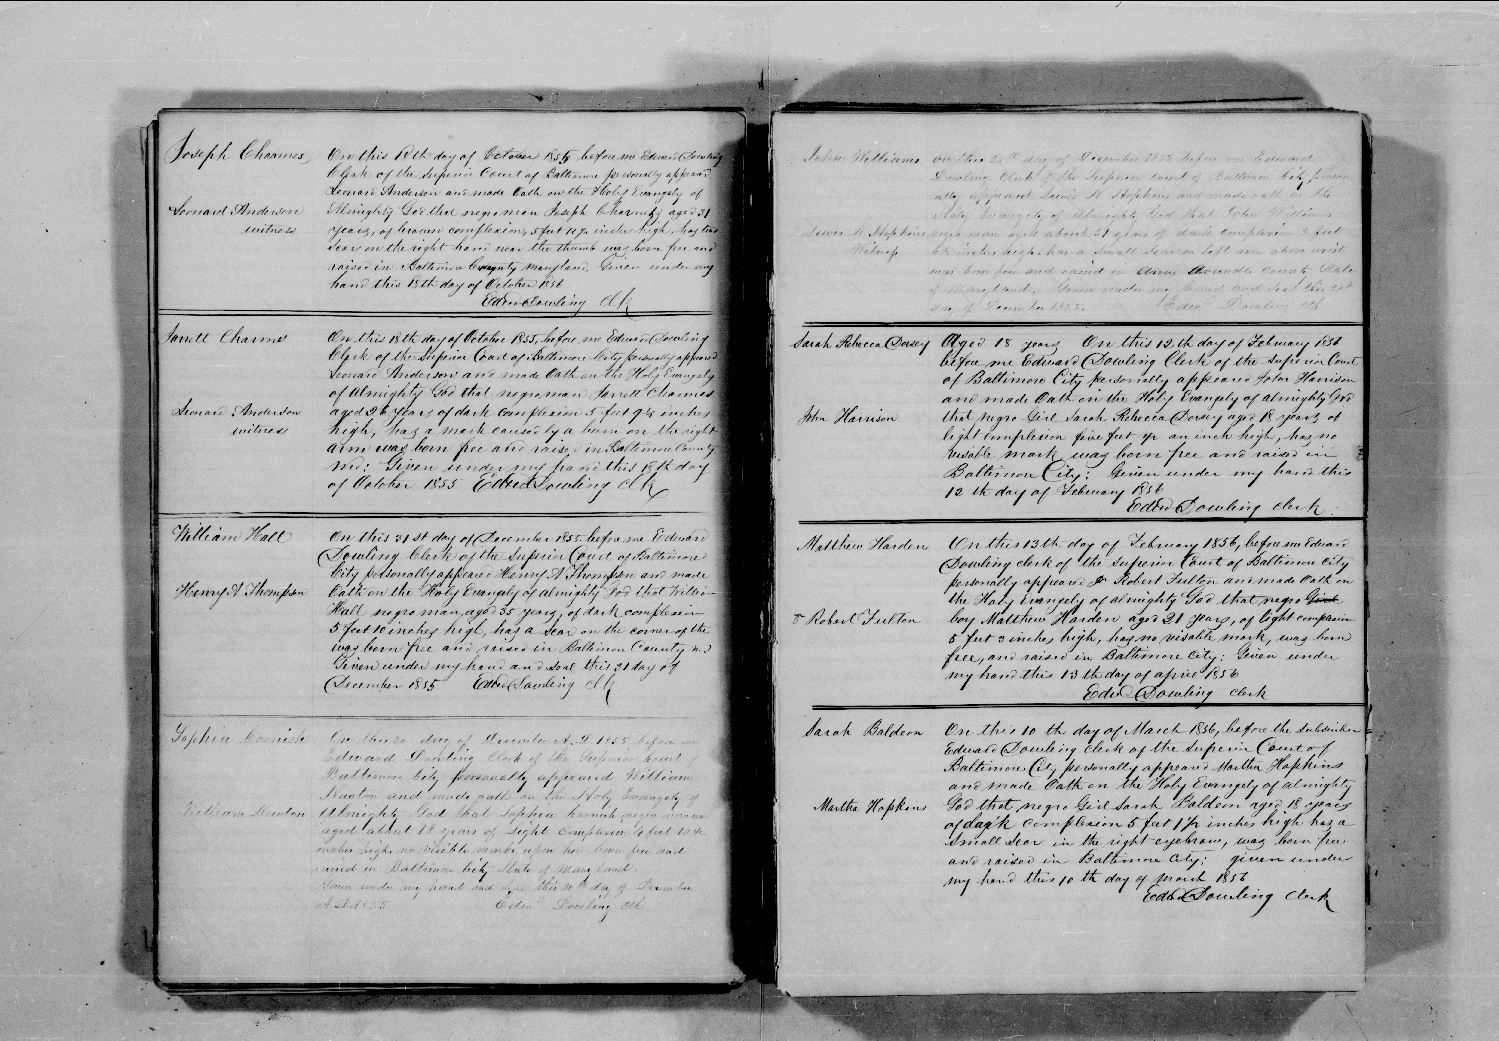 Joseph Charmes
On this 18th day of October 1855 before me Edward Dowling
Clerk of the Superior Court of Baltimore personally appeared
Leonard Anderson and made Oath on the Holy Evangely of
Leonard Anderson
witness
Almighty God that negro man Joseph Charmes aged 31
years, of brown complexion, 5 feet inches high, has two
Scars on the right hand near the thumb was born free and
raised in Baltimore County Maryland, Given under my
hand this 18th day of October 1855
Edwd Dowling Clk
Jarrett Charmes
On this 18th day of October 1855, before me Edward Dowling
Clerk of the Superior Court of Baltimore City personally appeared
Leonard Anderson and made Oath on the Holy Evangely
of Almighty God that negro man Jarrett Charmes
Leonard Anderson
witness
aged 26 years of dark complexion 5 feet 9½ inches
high, has a mark caused by a burn on the right
arm was born free and raised in Baltimore County
Md: Given under my hand this 18th day
of October 1855 Edwd Dowling Clk
William Hall
On this 31st day of December 1855 before me Edward
Dowling Clerk of the Superior Court of Baltimore
City personally appeared Henry A Thompson and made
Henry A Thompson
Oath on the Holy Evangely of almighty God that William
Hall negro man, aged 35 years, of dark complexion
5 feet inches high, has a Scar on the corner of the
was born free and raised in Baltimore County
Given under my hand and seal this 31 day of
December 1855 Edwd Dowling Clk
Sophia Cornish
On this 20 day of December A.D. 1855 before me
Edward Dowling Clerk of the Superior Court of
Baltimore City personally appeared William
Newton and made oath on the Holy Evangely of
William Newton
Almighty God that Sophia Cornish negro woman
aged about 18 years of light complexion 4 feet
inches high no visible marks upon her born free and
raised in Baltimore City State of Maryland.
Given under my hand and seal this 20th day of December
A.D. 1855 Edwd Dowling Clk
John Williams
on this 20th day of December 1855 before me Edward
Dowling Clerk of the Superior Court of Baltimore City person
ally appeared Lewis N Hopkins and made oath on the
Holy Evangely of Almighty God that John Williams
Lewis N Hopkins
Witness
negro man aged about 51 years of dark complexion 5 feet
inches high has a small scar on left arm above wrist
was born free and raised in Anne Arundle County State
of Maryland. Given under my hand and seal this 20th
day of December 1855. Edwd Dowling Clk
Sarah Rebecca Dorsey
Aged 18 years On this 12th day of February 1856
before me Edward Dowling Clerk of the Superior Court
of Baltimore City personally appeared John Harrison
and made Oath on the Holy Evangely of almighty God
John Harrison
that negro Girl Sarah Rebecca Dorsey aged 18 years of
light complexion five feet ½ an inch high, has no
visable mark was born free and raised in
Baltimore City: Given under my hand this
12th day of February 1856
Edwd Dowling Clerk
Matthew Harden
On this 13th day of February 1856, before me Edward
Dowling clerk of the Superior Court of Baltimore City
personally appeared Robert Fulton and made Oath on
the Holy Evangely of almighty God that negro Girl
Robert Fulton
boy Matthew Harden aged 21 years, of light complexion
5 feet 3 inches high, has no visable mark, was born
free, and raised in Baltimore City: Given under
my hand this 13th day of april 1856
Edwd Dowling Clerk
Sarah Baldeon
On this 10th day of March 1856, before the subscriber
Edward Dowling clerk of the Superior Court of
Baltimore City personally appeared Martha Hopkins
and made Oath on the Holy Evangely of almighty
Martha Hopkins
God that negro Girl Sarah Baldeon aged 18 years
of dark complexion 5 feet 1½ inches high has a
small scar in the right eyebrow, was born free
and raised in Baltimore City: given under
my hand this 10th day of march 1856
Edwd Dowling Clerk